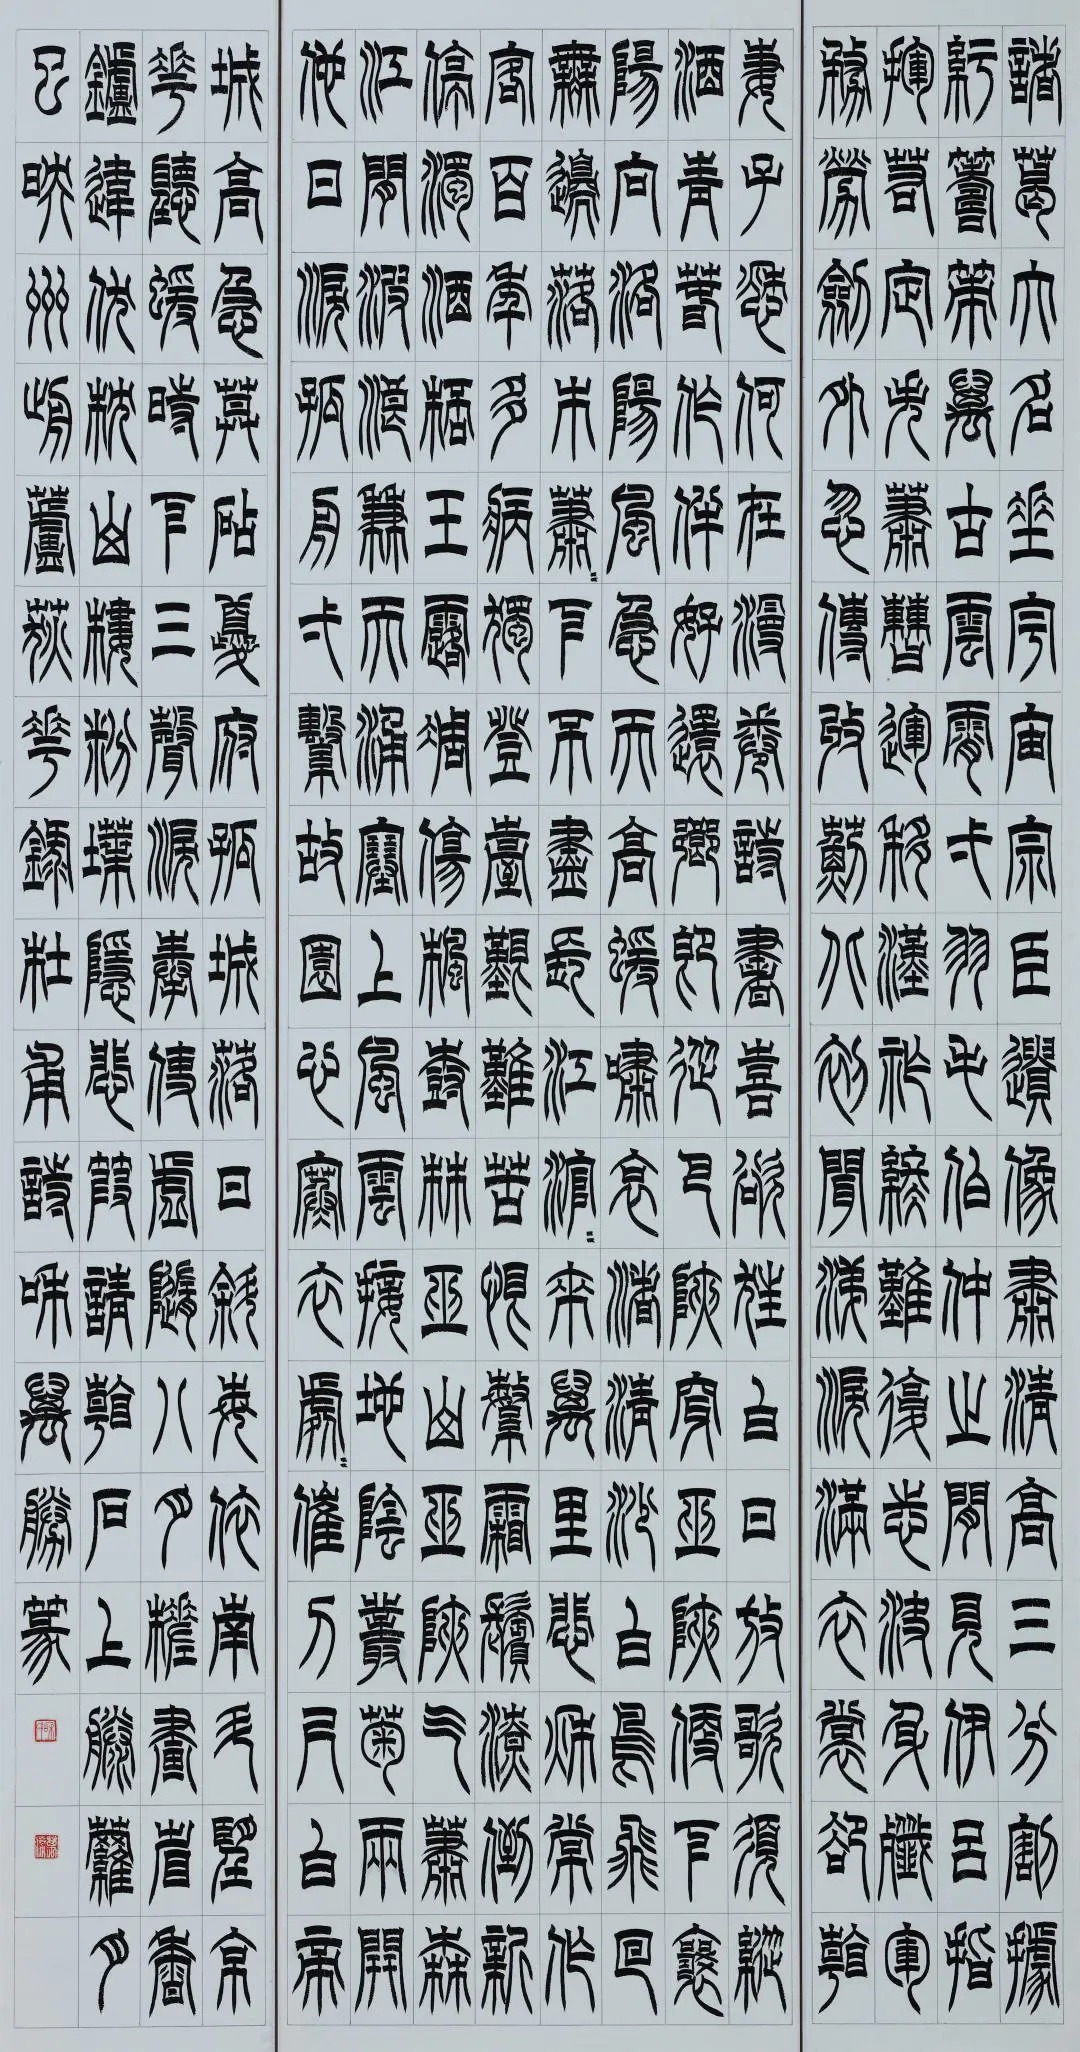 諸葛大名垂宇宙宗臣遺像肅清高三分割據
紆籌策萬古雲霄一羽毛伯仲之間見伊呂指
揮若定失蕭曹運移漢祚終難復志決身殲軍
務勞劍外忽傳收薊北初聞涕淚滿衣裳卻看
妻子愁何在漫卷詩書喜欲狂白日放歌須縱
酒青春作伴好還鄉即從巴峽穿巫峽便下襄
陽向洛陽風急天高猿嘯哀渚清沙白鳥飛回
無邊落木蕭〻下不盡長江滾〻來萬里悲秋常作
客百年多病獨登臺艱難苦恨繁霜鬢潦倒新
停濁酒桮玉露凋傷楓樹林巫山巫峽气蕭森
江間波浪兼天涌塞上風雲接地陰叢菊兩開
他日淚孤舟一繫故園心寒衣處〻催刀尺白帝
城高急暮砧夔府孤城落日斜每依南斗望京
華聽猿時下三聲淚奉使虛隨八月槎畫省香
鑪違伏枕山樓粉堞隱悲笳請看石上藤蘿月
已映州前蘆荻花錄杜甫詩和萬勝篆